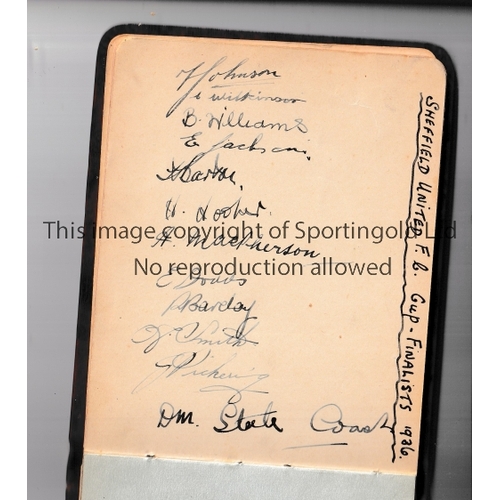 T Johnson
J. Wilkinson
B. Williams
E Jackson.
H Barton.
H. Hooper.
A MacPherson
E Dodds
R Barclay
J. Smith
J Pickering
Dm. State Coach
SHEFFIELD UNITED F. C. CUP-FINALISTS 1936
This image copyright of Sportingold Ltd
No reproduction allowed